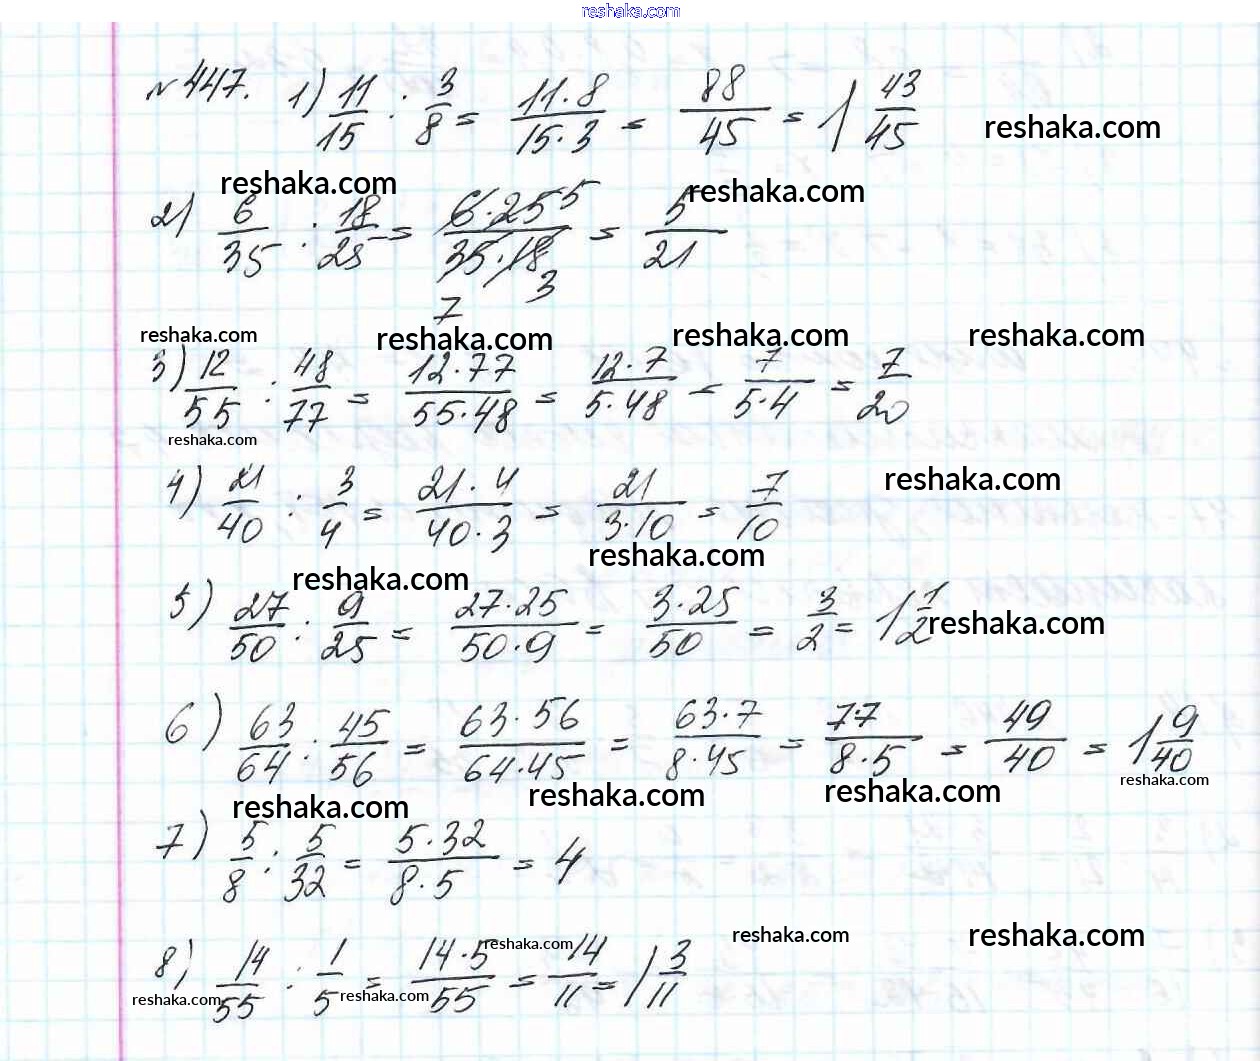 reshaka.com
№447. 1) 11/15 : 3/8 = 11·8/15·3 = 88/45 = 1 43/45
reshaka.com
reshaka.com reshaka.com
2) 6/35 : 18/25 = 6·25 5/35·18 7 3 = 5/21
reshaka.com reshaka.com reshaka.com reshaka.com
3) 12/55 : 48/77 = 12·77/55·48 = 12·7/5·48 = 7/5·4 = 7/20
reshaka.com
4) 21/40 : 3/4 = 21·4/40·3 = 21/3·10 = 7/10
reshaka.com
reshaka.com reshaka.com
5) 27/50 : 9/25 = 27·25/50·9 = 3·25/50 = 3/2 = 1 1/2
reshaka.com
6) 63/64 : 45/56 = 63·56/64·45 = 63·7/8·45 = 7·7/8·5 = 49/40 = 1 9/40
reshaka.com reshaka.com reshaka.com reshaka.com
7) 5/8 : 5/32 = 5·32/8·5 = 4
reshaka.com reshaka.com reshaka.com
8) 14/55 : 1/5 = 14·5/55 = 14/11 = 1 3/11
reshaka.com reshaka.com